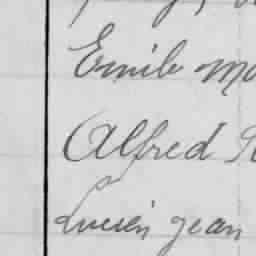 Emile
Alfred
Lucien Jean